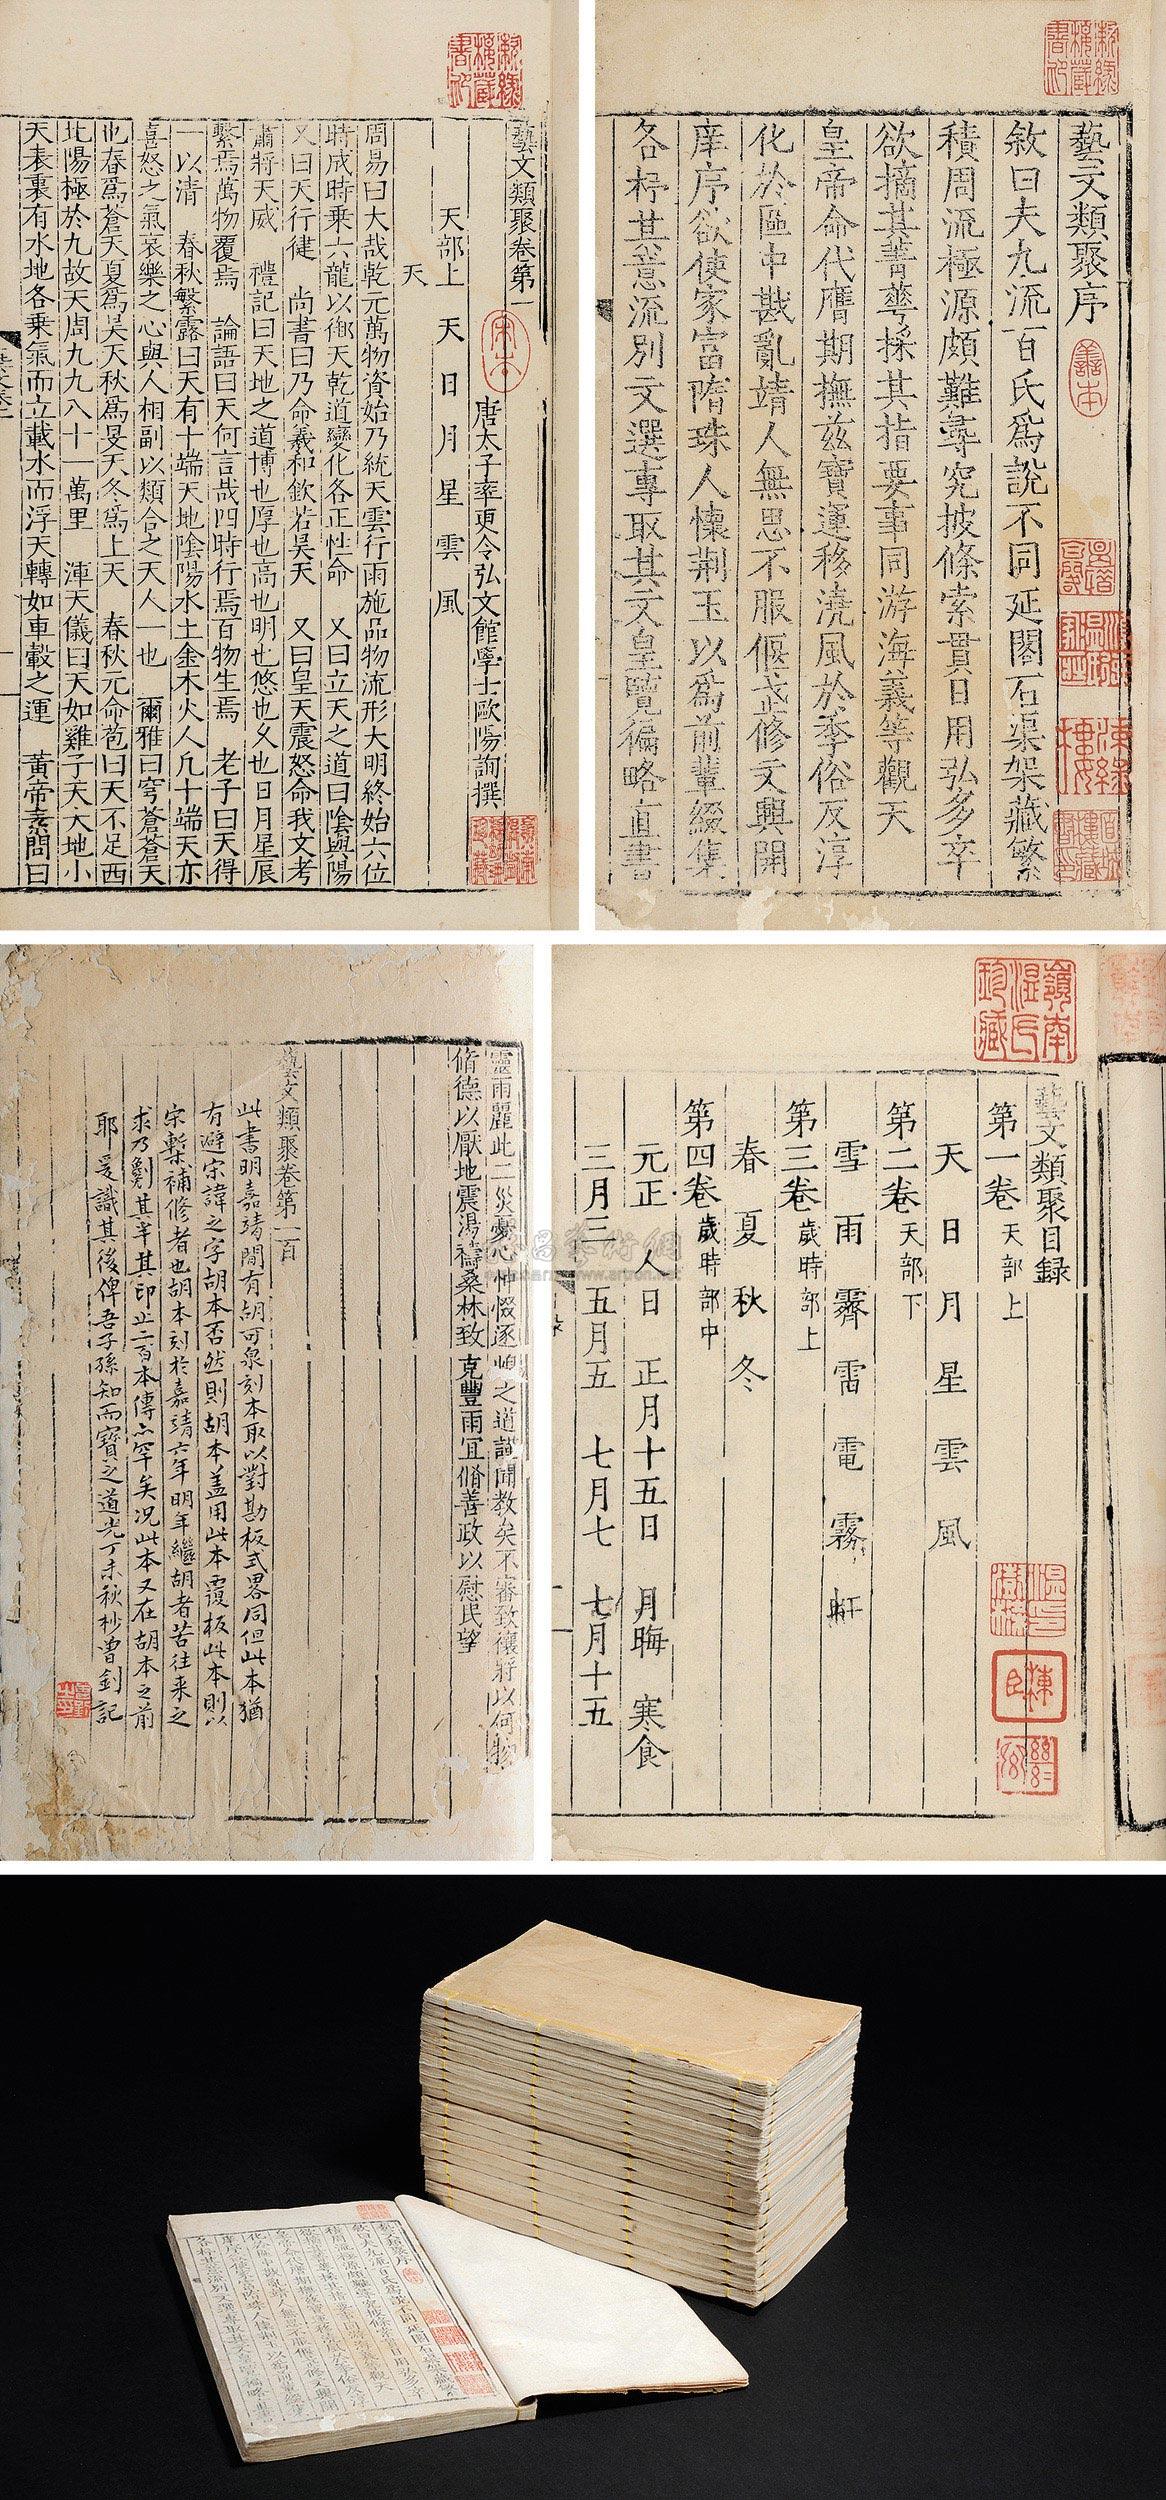 藝文類聚卷第一
唐太子率更令弘文館學士歐陽詢撰
天部上 天 日 月 星 雲 風
天
周易曰大哉乾元萬物資始乃統天雲行雨施品物流形大明終始六位
時成時乘六龍以御天乾道變化各正性命 又曰立天之道曰陰與陽
又曰天行健 尚書曰乃命羲和欽若昊天 又曰皇天震怒命我文考
肅將天威 禮記曰天地之道博也厚也高也明也悠也久也日月星辰
繫焉萬物覆焉 論語曰天何言哉四時行焉百物生焉 老子曰天得
一以清 春秋繁露曰天有十端天地陰陽水土金木火人凡十端天亦
喜怒之氣哀樂之心與人相副以類合之天人一也 爾雅曰穹蒼蒼天
也春爲蒼天夏爲昊天秋爲旻天冬爲上天 春秋元命苞曰天不足西
北陽極於九故天周九九八十一萬里 渾天儀曰天如雞子天大地小
天表裏有水地各乘氣而立載水而浮天轉如車轂之運 黃帝素問曰
宋本
藝文類聚序
善本
敘曰夫九流百氏爲說不同延閣石渠架藏繁
積周流極源頗難尋究披條索貫日用弘多卒
欲摘其菁華採其指要事同游海義等觀天
皇帝命代膺期撫茲寶運移澆風於季俗反淳
化於區中戡亂靖人無思不服偃武修文興開
庠序欲使家富隋珠人懷荆玉以爲前輩綴集
各杼其意流別文選專取其文皇覽徧略直書
靈雨麗此二災憂心忡惙逐 之道謹聞教矣不審致禳將以何物
脩德以厭地震湯禱桑林致克豐雨宜脩善政以慰民望
藝文類聚卷第一百
此書明嘉靖間有胡可泉刻本取以對勘板式畧同但此本猶
有避宋諱之字胡本否然則胡本蓋用此本覆板此本則以
宋槧補修者也胡本刻於嘉靖六年明年繼胡者苦往來之
求乃劖其半其印止二百本傳亦罕矣况此本又在胡本之前
耶爰識其後俾吾子孫知而寶之道光丁未秋杪曾釗記
嶺南溫氏珍藏
藝文類聚目録
第一卷 天部上
天 日 月 星 雲 風
第二卷 天部下
雪 雨 霽 雷 電 霧 虹
第三卷 歲時部上
春 夏 秋 冬
第四卷 歲時部中
元正 人日 正月十五日 月晦 寒食
三月三 五月五 七月七 七月十五